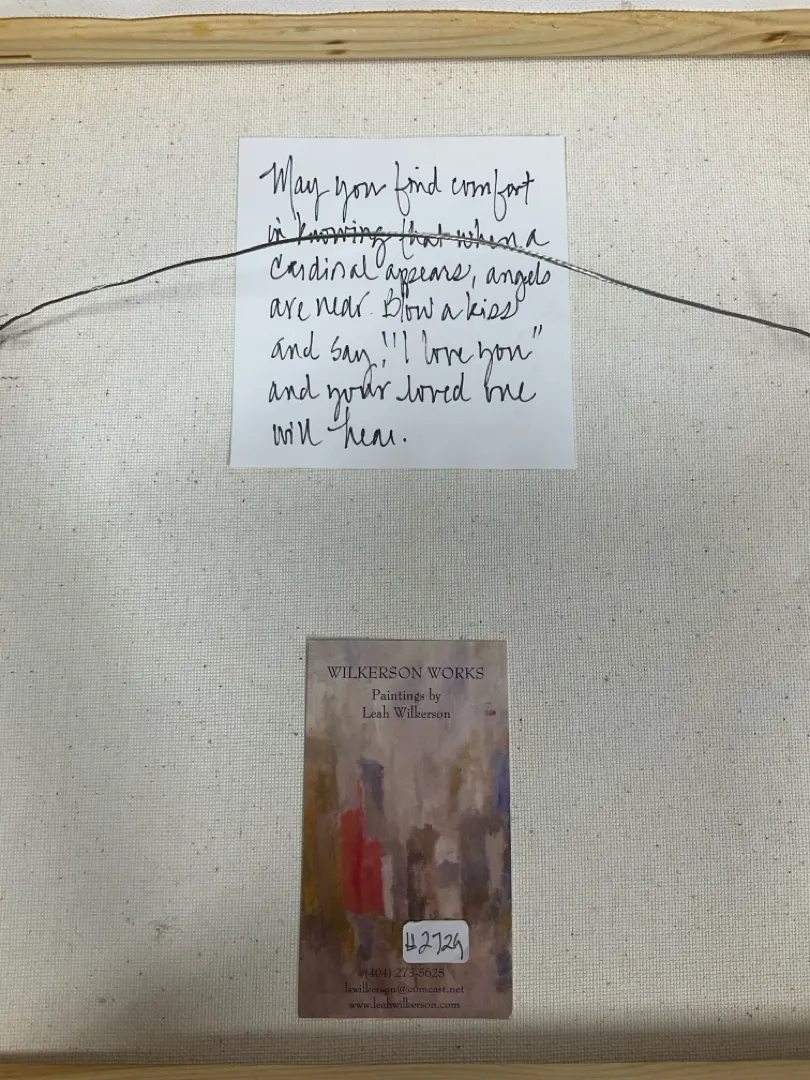 May you find comfort
in knowing that when a
cardinal appears, angels
are near. Blow a kiss
and say, "I love you"
and your loved one
will hear.
WILKERSON WORKS
Paintings by
Leah Wilkerson
#2729
(404) 273-5625
lswilkerson@comcast.net
www.leahwilkerson.com